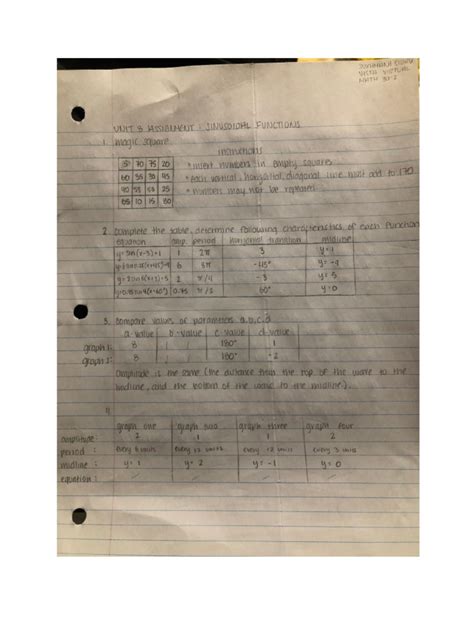 VISTA VIRTUAL
MATH 30-2
UNIT 8 ASSIGNMENT: SINUSOIDAL FUNCTIONS
1. magic square
instructions
5 70 75 20
60 35 30 45
40 55 25
65 10 15 80
* insert numbers in empty squares
* each vertical, horizontal, diagonal line must add to 170
* numbers may not be repeated
2. complete the table, determine following characteristics of each function
equation amp. period horizontal translation midline
1 2π 3 y=
6 -45° y=-9
2 y=5
0.75 π/2 60° y=0
3. compare values of parameters a,b,c,d
a-value b-value c-value d-value
graph 1: 8 1 180° 1
graph 2: 8 1 180° -2
Amplitude is the same (the distance from the top of the wave to the
midline, and the bottom of the wave to the midline).
4.
graph one graph two graph three graph four
amplitude: 2 1 1 2
period: every units every 12 units every 12 units every 3 units
midline: y=1 y=2 y=-1 y=0
equation: